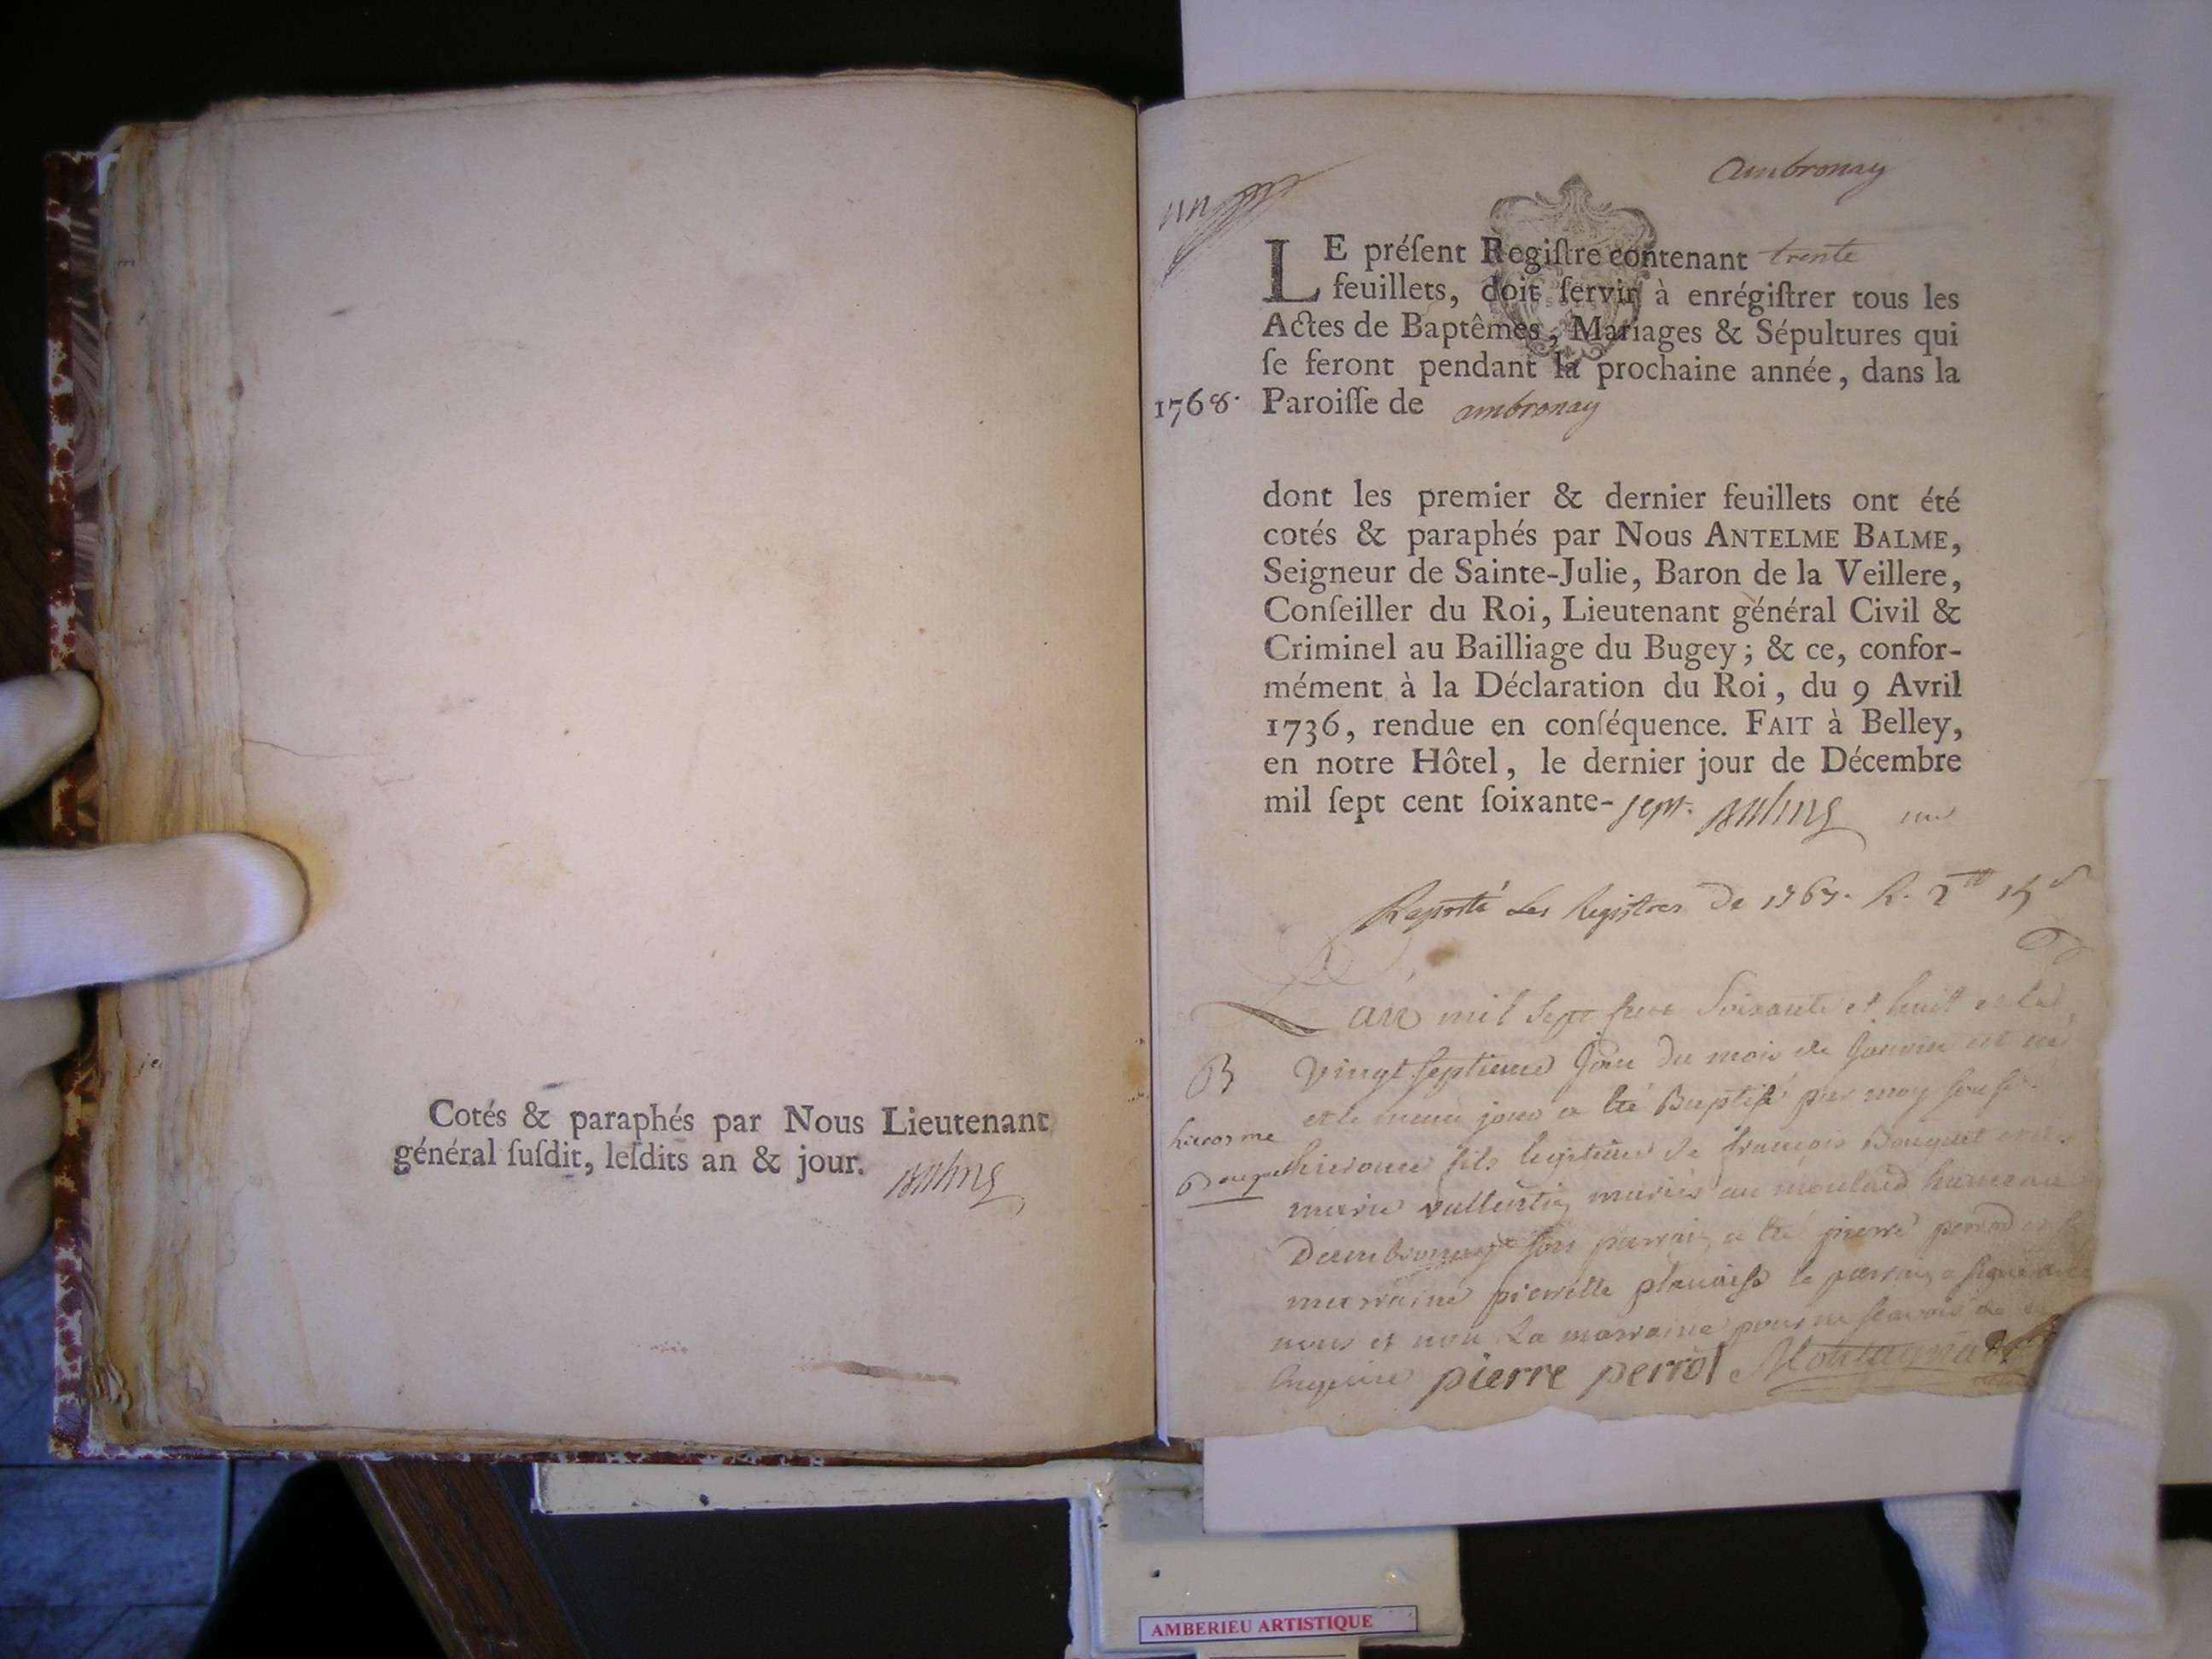 Cotés & paraphés par Nous Lieutenant
général ſuſdit, leſdits an & jour.
ambronay
un
LE préſent Regiſtre contenant trente
feuillets, doit ſervir à enrégiſtrer tous les
Actes de Baptêmes, Mariages & Sépultures qui
ſe feront pendant la prochaine année, dans la
1768. Paroiſſe de ambronay
dont les premier & dernier feuillets ont été
cotés & paraphés par Nous ANTELME BALME,
Seigneur de Sainte-Julie, Baron de la Veillere,
Conſeiller du Roi, Lieutenant général Civil &
Criminel au Bailliage du Bugey; & ce, confor-
mément à la Déclaration du Roi, du 9 Avril
1736, rendue en conſéquence. FAIT à Belley,
en notre Hôtel, le dernier jour de Décembre
mil ſept cent ſoixante-sept.
Raporté Les Registres De 1767.
L'an mil sept cent soixante et huit et le
B vingt septieme jour du mois de janvier est né
et le meme jour a été Baptisé par moy sousé.
hierosme
Bouquet hierome fils legitime de françois Bouquet et de
marie vallentin mariés au moulard hameau
Dambronay son parrain a été pierre perrod et
marraine pierrette le parrain a signé avec
nous et non La marraine pour ne scavoir de
enquise pierre perrot
AMBERIEU ARTISTIQUE